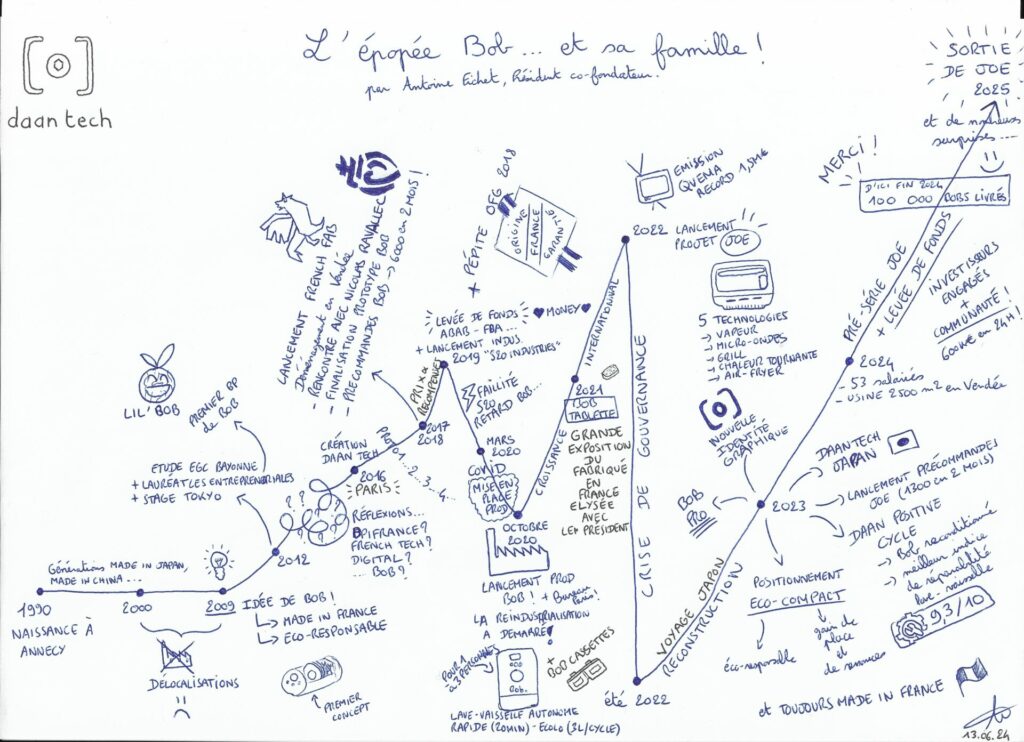 L'épopée Bob... et sa famille !
par Antoine Eichet, Résident co-fondateur.
daan tech
SORTIE
DE JOE
2025
et de nombreuses
surprises...
MERCI !
D'ICI FIN 2024
100 000 BOBS LIVRÉS
1990
NAISSANCE À
ANNECY
Générations MADE IN JAPAN,
MADE IN CHINA...
2000
2009
DÉLOCALISATIONS
IDÉE DE BOB !
MADE IN FRANCE
ECO-RESPONSABLE
PREMIER
CONCEPT
2012
ETUDE EGC BAYONNE
+ LAURÉAT LES ENTREPRENARIALES
+ STAGE TOKYO
PREMIER BP
de BOB
LIL'BOB
CRÉATION
DAAN TECH
2016
PARIS
RÉFLEXIONS...
BPIFRANCE ?
FRENCH TECH ?
DIGITAL ?
... BOB ?
PROTO 1... 2... 3... 4...
2017
2018
LANCEMENT FRENCH FAB
Déménagement en Vendée
- RENCONTRE AVEC NICOLAS RAVALLEC
- FINALISATION PROTOTYPE BOB
- PRECOMMANDES BOB → 6000 en 2 MOIS !
PRIX &
RECOMPENSES
+ PÉPITE OFG 2018
ORIGINE
FRANCE
GARANTIE
LEVÉE DE FONDS
ABAB - FBA...
+ LANCEMENT INDUS.
2019 "S20 INDUSTRIES"
MONEY
FAILLITE
S20
RETARD BOB...
MARS
2020
COVID
MISE EN
PLACE
PROD
OCTOBRE
2020
LANCEMENT PROD
BOB ! + Bureau Paris !
LA RÉINDUSTRIALISATION
A DEMARRÉ !
POUR 1
à 3 PERSONNES
Bob.
+ BOB CASSETTES
LAVE-VAISSELLE AUTONOME
RAPIDE (20MIN) - ECOLO (3L/CYCLE)
CROISSANCE
INTERNATIONAL
2021
BOB
TABLETTE
GRANDE
EXPOSITION
DU
FABRIQUÉ
EN
FRANCE
ELYSÉE
AVEC
LE PRESIDENT
EMISSION
QVEMA
RECORD 1,5M€
2022 LANCEMENT
PROJET JOE
5 TECHNOLOGIES
→ VAPEUR
→ MICRO-ONDES
→ GRILL
→ CHALEUR TOURNANTE
→ AIR-FRYER
CRISE DE GOUVERNANCE
été 2022
VOYAGE JAPON
RECONSTRUCTION
2023
NOUVELLE
IDENTITÉ
GRAPHIQUE
BOB
PRO
DAAN TECH
JAPAN
LANCEMENT PRÉCOMMANDES
JOE (1300 en 2 MOIS)
DAAN POSITIVE
CYCLE
→ Bob reconditionné
→ meilleur indice
de réparabilité
lave-vaisselle
9,3/10
POSITIONNEMENT
ECO-COMPACT
éco-responsable
gain de
place
et
de ressources
PRÉ-SÉRIE JOE
+ LEVÉE DE FONDS
INVESTISSEURS
ENGAGÉS
+
COMMUNAUTÉ !
600k€ en 24H !
2024
- 53 salariés
- USINE 2500 m2 en Vendée
et TOUJOURS MADE IN FRANCE
13.06.24